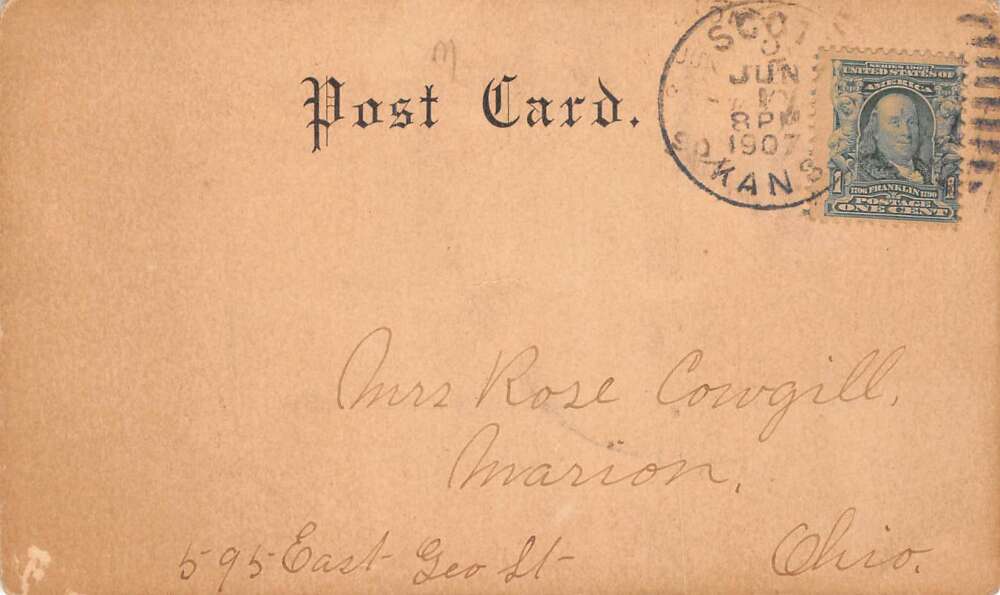 m
Post Card.
SCOTT
JUN
8 PM
1907
KANS
SERIES 1902
UNITED STATES OF
AMERICA
1
1706 FRANKLIN 1790
POSTAGE
ONE CENT
Mrs Rose Cowgill,
Marion,
595 East Geo St
Ohio.